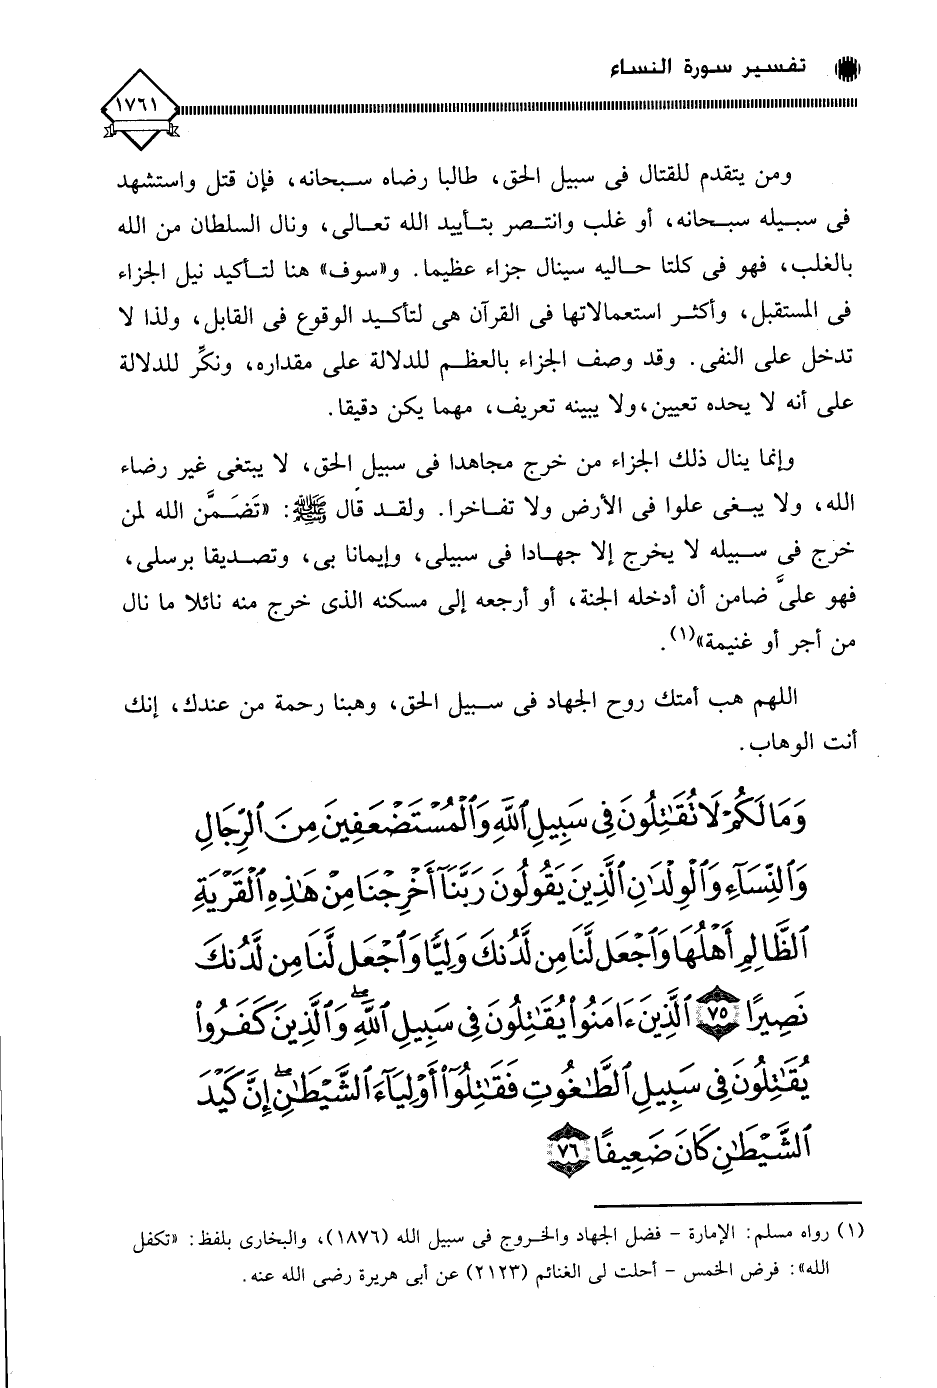 تفسير سورة النساء
١٧٦١
ومن يتقدم للقتال فى سبيل الحق، طالبا رضاه سبحانه، فإن قتل واستشهد
فى سبيله سبحانه، أو غلب وانتصر بتأييد الله تعالى، ونال السلطان من الله
بالغلب، فهو فى كلتا حاليه سينال جزاء عظيما. و«سوف» هنا لتأكيد نيل الجزاء
فى المستقبل، وأكثر استعمالاتها فى القرآن هى لتأكيد الوقوع فى القابل، ولذا لا
تدخل على النفى. وقد وصف الجزاء بالعظم للدلالة على مقداره، ونكِّر للدلالة
على أنه لا يحده تعيين،ولا يبينه تعريف، مهما يكن دقيقا.
وإنما ينال ذلك الجزاء من خرج مجاهدا فى سبيل الحق، لا يبتغى غير رضاء
الله، ولا يبغى علوا فى الأرض ولا تفاخرا. ولقد قال ﷺ: «تَضَمَّن الله لمن
خرج فى سبيله لا يخرج إلا جهادا فى سبيلى، وإيمانا بى، وتصديقا برسلى،
فهو علىَّ ضامن أن أدخله الجنة، أو أرجعه إلى مسكنه الذى خرج منه نائلا ما نال
من أجر أو غنيمة»(١).
اللهم هب أمتك روح الجهاد فى سبيل الحق، وهبنا رحمة من عندك، إنك
أنت الوهاب.
وَمَا لَكُمْ لَا تُقَٰتِلُونَ فِى سَبِيلِ ٱللَّهِ وَٱلْمُسْتَضْعَفِينَ مِنَ ٱلرِّجَالِ
وَٱلنِّسَآءِ وَٱلْوِلْدَٰنِ ٱلَّذِينَ يَقُولُونَ رَبَّنَآ أَخْرِجْنَا مِنْ هَٰذِهِ ٱلْقَرْيَةِ
ٱلظَّالِمِ أَهْلُهَا وَٱجْعَل لَّنَا مِن لَّدُنكَ وَلِيًّا وَٱجْعَل لَّنَا مِن لَّدُنكَ
نَصِيرًا ٧٥ ٱلَّذِينَ ءَامَنُوا۟ يُقَٰتِلُونَ فِى سَبِيلِ ٱللَّهِ ۖ وَٱلَّذِينَ كَفَرُوا۟
يُقَٰتِلُونَ فِى سَبِيلِ ٱلطَّٰغُوتِ فَقَٰتِلُوٓا۟ أَوْلِيَآءَ ٱلشَّيْطَٰنِ ۖ إِنَّ كَيْدَ
ٱلشَّيْطَٰنِ كَانَ ضَعِيفًا ٧٦
(١) رواه مسلم: الإمارة - فضل الجهاد والخروج فى سبيل الله (١٨٧٦)، والبخارى بلفظ: «تكفل
الله»: فرض الخمس - أحلت لى الغنائم (٢١٢٣) عن أبى هريرة رضى الله عنه.